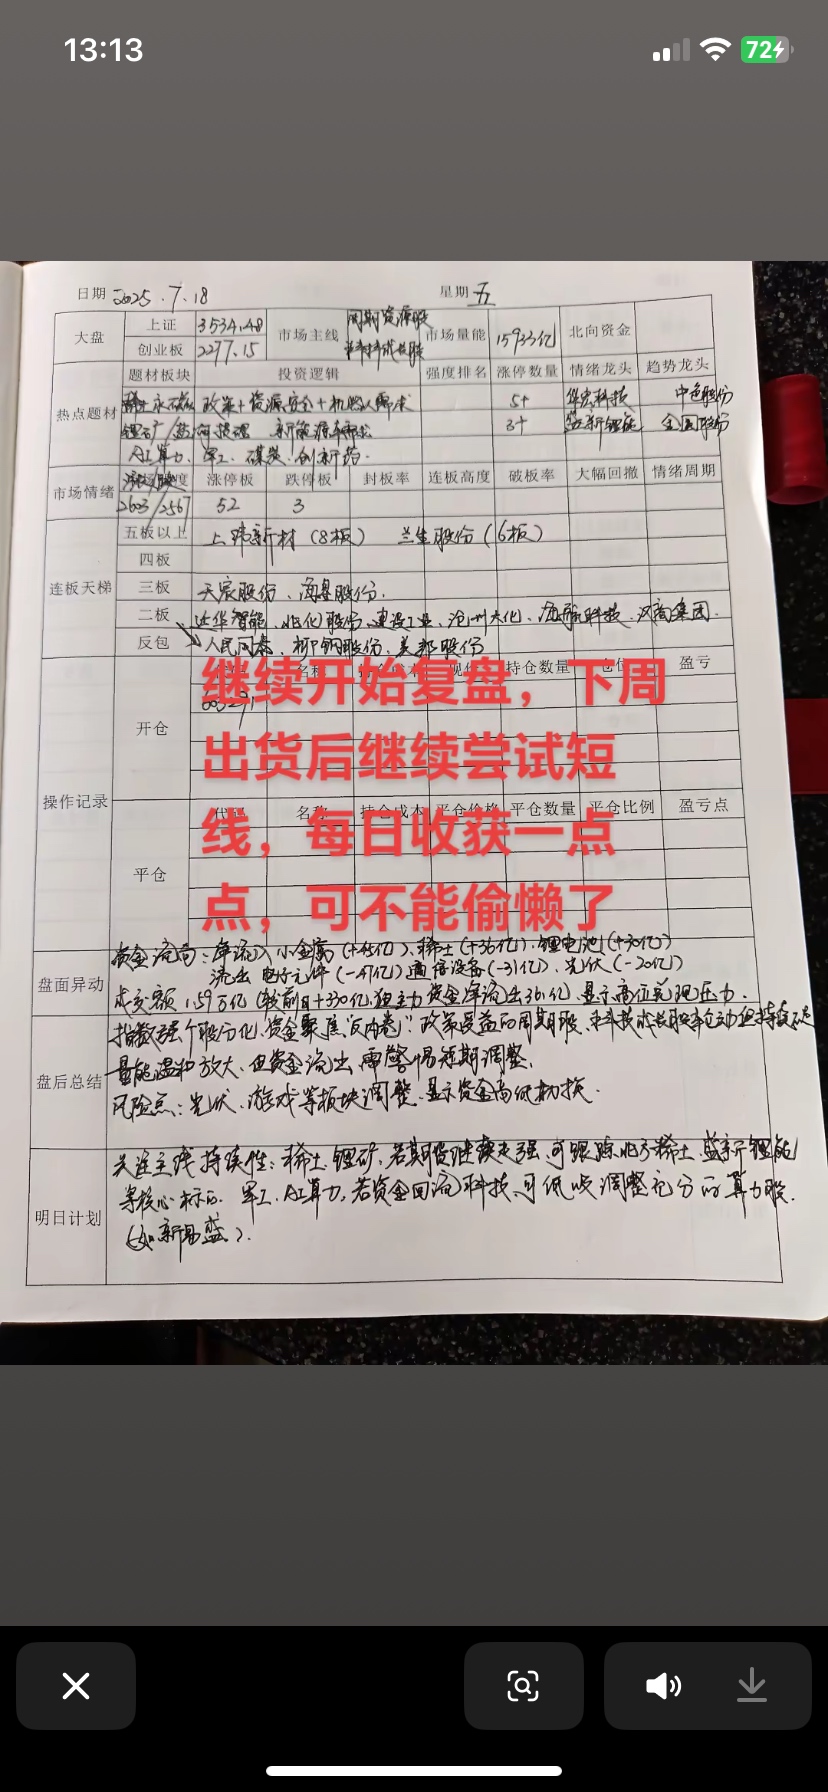 13:13
72
日期 2025.7.18 星期 五
大盘 上证 3534.48 市场主线 周期资源股 市场量能 15933亿 北向资金
创业板 2277.15 科技成长股
题材板块 投资逻辑 强度排名 涨停数量 情绪龙头 趋势龙头
热点题材 稀土永磁 政策+资源安全+机器人需求 5+ 华宏科技 中色股份
锂矿/盐湖提锂 新能源车需求 3+ 盛新锂能 金圆股份
AI算力、军工、煤炭、创新药.
市场情绪 涨停板 跌停板 封板率 连板高度 破板率 大幅回撤 情绪周期
2603/2567 52 3
连板天梯 五板以上 上纬新材(8板) 兰生股份(6板)
四板
三板 天宸股份、海昌股份.
二板 达华智能、北化股份、建设工业、沧州大化、 科技、汉商集团.
反包 人民同泰、柳钢股份、美邦股份
名称 持仓数量 盈亏
操作记录 开仓
代码 名称 持仓成本 平仓价格 平仓数量 平仓比例 盈亏点
平仓
继续开始复盘，下周
出货后继续尝试短
线，每日收获一点
点，可不能偷懒了
盘面异动 资金流向:净流入 小金属(+45亿)、稀土(+36亿)、锂电池(+30亿)
流出 电子元件(-47亿)通信设备(-31亿)、光伏(-20亿)
成交额1.59万亿(较前日+330亿,但主力资金净流出361亿,显示高位兑现压力.
盘后总结 指数强个股分化,资金聚焦"反内卷"政策受益的周期股,科技成长股轮动但持续不足
量能温和放大,但资金流出,需警惕短期调整.
风险点:光伏、游戏等板块调整,显示资金高低切换.
明日计划 关注主线持续性:稀土、锂矿,若期货继续走强,可跟踪北方稀土、盛新锂能
等核心标的.军工、AI算力,若资金回流科技,可低吸调整充分的算力股.
(如新易盛).